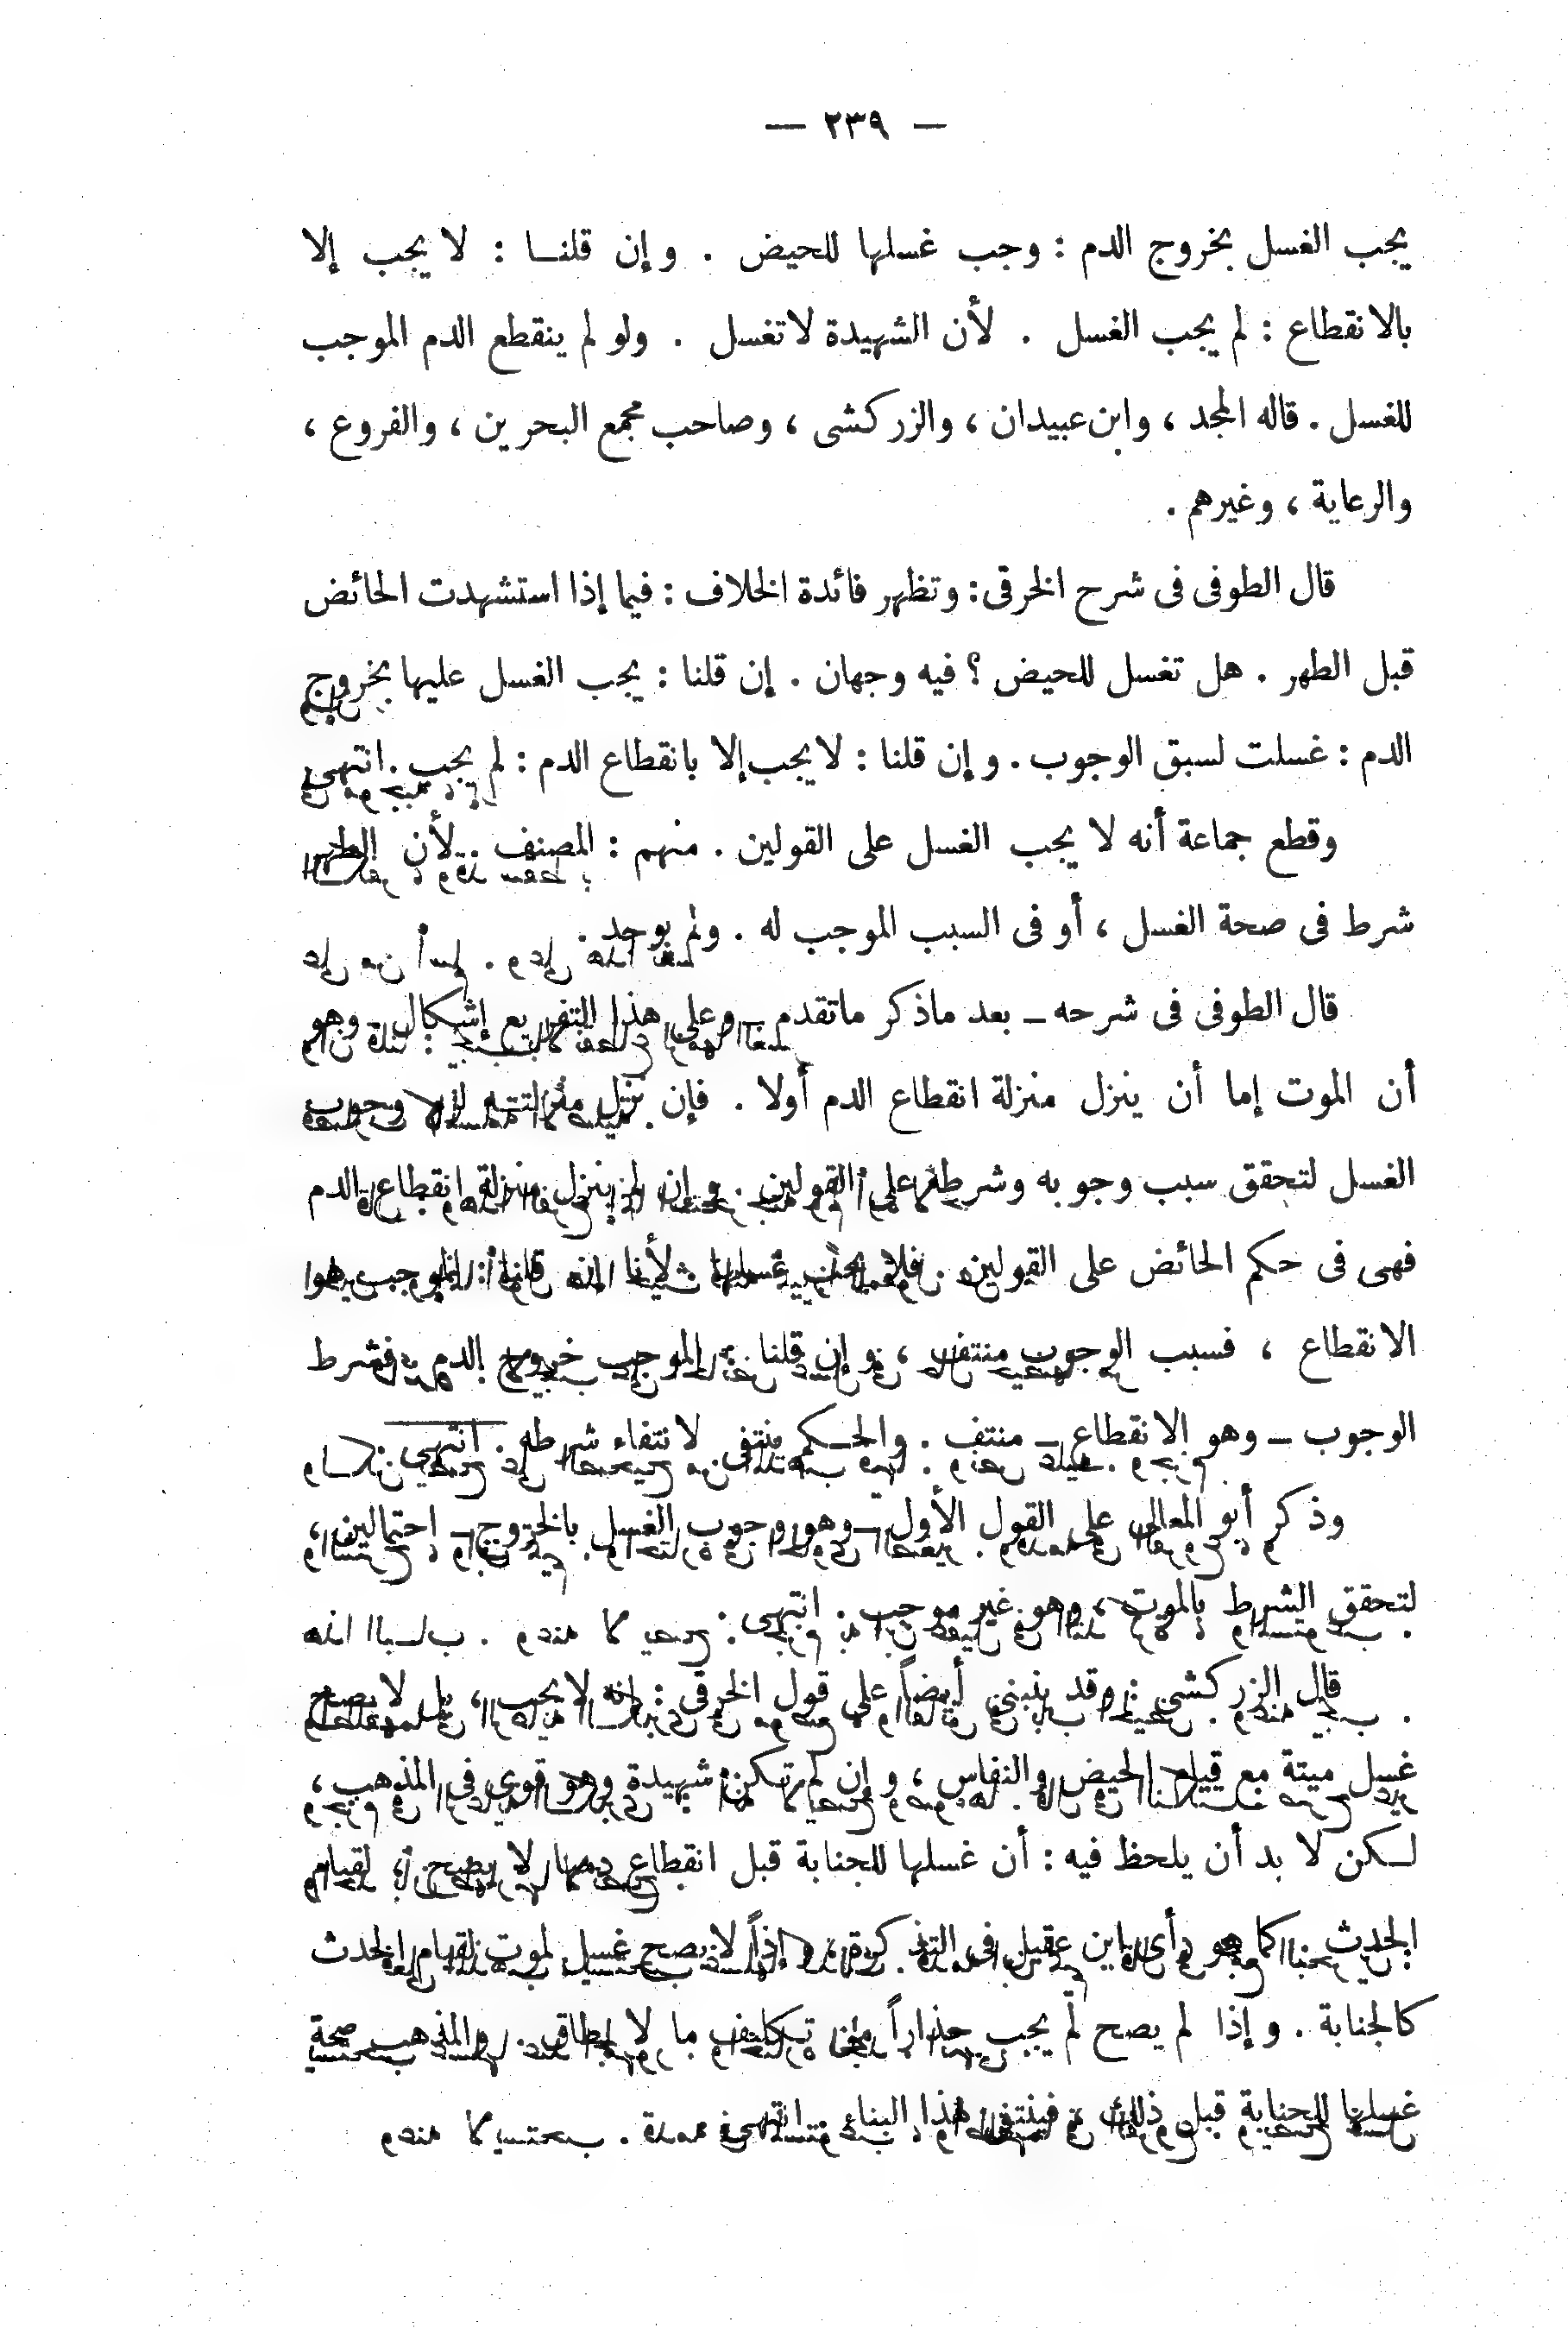 — ٢٣٩ —
يجب الغسل بخروج الدم : وجب غسلها للحيض . وإن قلنــا : لا يجب إلا
بالانقطاع : لم يجب الغسل . لأن الشهيدة لا تغسل . ولو لم ينقطع الدم الموجب
للغسل . قاله المجد ، وابن عبيدان ، والزركشى ، وصاحب مجمع البحرين ، والفروع ،
والرعاية ، وغيرهم .
قال الطوفى فى شرح الخرقى : وتظهر فائدة الخلاف : فيما إذا استشهدت الحائض
قبل الطهر . هل تغسل للحيض ؟ فيه وجهان . إن قلنا : يجب الغسل عليها بخروج
الدم : غسلت لسبق الوجوب . وإن قلنا : لا يجب إلا بانقطاع الدم : لم يجب . انتهى
وقطع جماعة أنه لا يجب الغسل على القولين . منهم : المصنف . لأن الطهر
شرط فى صحة الغسل ، أو فى السبب الموجب له . ولم يوجد .
قال الطوفى فى شرحه ــ بعد ماذكر ماتقدم ــ وعلى هذا التفريع إشكال ــ وهو
أن الموت إما أن ينزل منزلة انقطاع الدم أولا . فإن نزل منزلته لزم وجوب
الغسل لتحقق سبب وجوبه وشرطه على القولين . وإن لم ينزل منزلة انقطاع الدم
فهى فى حكم الحائض على القولين . فلا يجب غسلها لأنا إن قلنا : الموجب هو
الانقطاع ، فسبب الوجوب منتف ، وإن قلنا : الموجب خروج الدم ، فشرط
الوجوب ــ وهو الانقطاع ــ منتف . والحـكم ينتفى لانتفاء شرطه . انتهى .
وذكر أبو المعالى على القول الأول ــ وهو وجوب الغسل بالخروج ــ احتمالين ،
لتحقق الشرط بالموت ، وهو غير موجب . انتهى .
قال الزركشى : وقد ينبنى أيضاً على قول الخرقى : إنه لا يجب ، بل لا يصح
غسل ميتة مع قيام الحيض والنفاس ، وإن لم تـكن شهيدة وهو قوى فى المذهب ،
لـكن لا بد أن يلحظ فيه : أن غسلها للجنابة قبل انقطاع دمها لا يصح ، لقيام
الحدث كما هو رأى ابن عقيل فى التذكرة ، وإذاً لا يصح غسل لموت لقيام الحدث
كالجنابة . وإذا لم يصح لم يجب حذاراً من تـكليف ما لا يطاق . والمذهب صحة
غسلها للجنابة قبل ذلك . فينتفى هذا البناء . انتهى